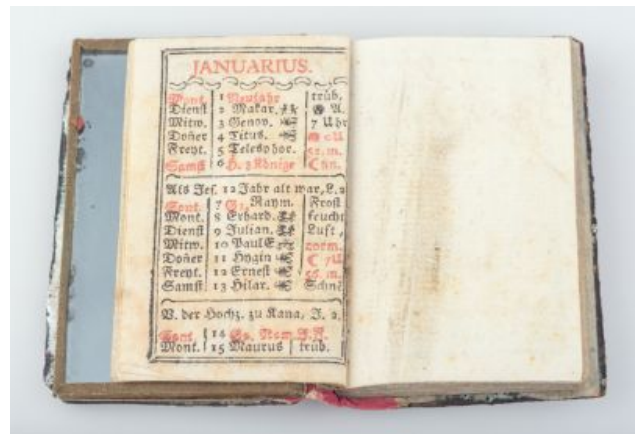 JANUARIUS.
Mont. 1 Neujahr trüb.
Dienst 2 Makar. U.
Mitw. 3 Genov. 7 Uhr
Doñer 4 Titus.
Freyt. 5 Telesphor. 52. m.
Samst 6 H. 3 Könige
Als Jes. 12 Jahr alt war, L. 2
Sont. 7 Raym. Frost
Mont. 8 Erhard. feucht
Dienst 9 Julian. Luft,
Mitw. 10 Paul E. vorm.
Doñer 11 Hygin 7 U
Freyt. 12 Ernest 56. m.
Samst 13 Hilar. Schne
V. der Hochz. zu Kana, J. 2.
Sont 14 Nam J.
Mont. 15 Maurus trüb.